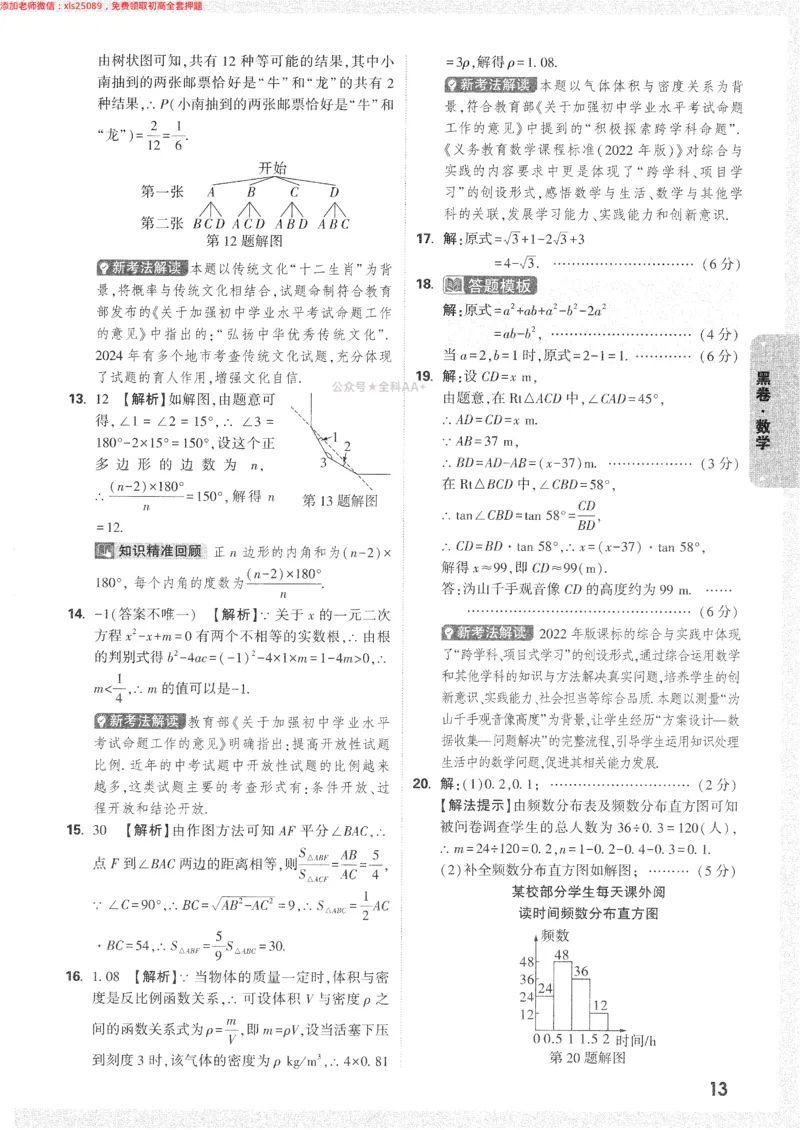 添加老师微信：xls25089，免费领取初高全套押题
由树状图可知,共有 12 种等可能的结果,其中小
南抽到的两张邮票恰好是“牛”和“龙”的共有 2
种结果,∴ P(小南抽到的两张邮票恰好是“牛”和
“龙”)=2/12=1/6.
开始
第一张 A B C D
第二张 B C D A C D A B D A B C
第 12 题解图
新考法解读 本题以传统文化“十二生肖”为背
景,将概率与传统文化相结合,试题命制符合教育
部发布的《关于加强初中学业水平考试命题工作
的意见》中指出的:“弘扬中华优秀传统文化”.
2024 年有多个地市考查传统文化试题,充分体现
了试题的育人作用,增强文化自信.
13. 12 【解析】如解图,由题意可
得,∠1 = ∠2 = 15°,∴ ∠3 =
180°-2×15°=150°,设这个正
多 边 形 的 边 数 为 n,
∴ (n-2)×180°/n=150°,解得 n
=12.
1
2
3
第 13 题解图
知识精准回顾 正 n 边形的内角和为(n-2)×
180°, 每个内角的度数为(n-2)×180°/n.
14. -1(答案不唯一) 【解析】∵ 关于 x 的一元二次
方程 x²-x+m=0 有两个不相等的实数根,∴ 由根
的判别式得 b²-4ac=(-1)²-4×1×m=1-4m>0,∴
m<1/4,∴ m 的值可以是-1.
新考法解读 教育部《关于加强初中学业水平
考试命题工作的意见》明确指出:提高开放性试题
比例. 近年的中考试题中开放性试题的比例越来
越多,这类试题主要的考查形式有:条件开放、过
程开放和结论开放.
15. 30 【解析】由作图方法可知 AF 平分∠BAC,∴
点 F 到∠BAC 两边的距离相等,则S△ABF/S△ACF=AB/AC=5/4,
∵ ∠C=90°,∴ BC=√(AB²-AC²)=9,∴ S△ABC=1/2AC
·BC=54,∴ S△ABF=5/9S△ABC=30.
16. 1.08 【解析】∵ 当物体的质量一定时,体积与密
度是反比例函数关系,∴ 可设体积 V 与密度 ρ 之
间的函数关系式为 ρ=m/V,即 m=ρV,设当活塞下压
到刻度 3 时,该气体的密度为 ρ kg/m³,∴ 4×0.81
=3ρ,解得 ρ=1.08.
新考法解读 本题以气体体积与密度关系为背
景,符合教育部《关于加强初中学业水平考试命题
工作的意见》中提到的“积极探索跨学科命题”.
《义务教育数学课程标准(2022 年版)》对综合与
实践的内容要求中更是体现了“跨学科、项目学
习”的创设形式,感悟数学与生活、数学与其他学
科的关联,发展学习能力、实践能力和创新意识.
17. 解:原式=√3+1-2√3+3
=4-√3. ………………………… (6 分)
18. 答题模板
解:原式=a²+ab+a²-b²-2a²
=ab-b², ………………………… (4 分)
当 a=2,b=1 时,原式=2-1=1. ………… (6 分)
19. 解:设 CD=x m,
由题意,在 Rt△ACD 中,∠CAD=45°,
∴ AD=CD=x m.
∵ AB=37 m,
∴ BD=AD-AB=(x-37)m. ……………… (3 分)
在 Rt△BCD 中,∠CBD=58°,
∴ tan∠CBD=tan 58°=CD/BD,
∴ CD=BD·tan 58°,∴ x=(x-37)·tan 58°,
解得 x≈99,即 CD≈99(m).
答:沩山千手观音像 CD 的高度约为 99 m. ……
……………………………………… (6 分)
新考法解读 2022 年版课标的综合与实践中体现
了“跨学科、项目式学习”的创设形式,通过综合运用数学
和其他学科的知识与方法解决真实问题,培养学生的创
新意识、实践能力、社会担当等综合品质. 本题以测量“沩
山千手观音像高度”为背景,让学生经历“方案设计—数
据收集—问题解决”的完整流程,引导学生运用知识处理
生活中的数学问题,促进其相关能力发展.
20. 解:(1)0.2,0.1; ………………………… (2 分)
【解法提示】由频数分布表及频数分布直方图可知
被问卷调查学生的总人数为 36÷0.3=120(人),
∴ m=24÷120=0.2,n=1-0.2-0.4-0.3=0.1.
(2)补全频数分布直方图如解图; ……… (5 分)
某校部分学生每天课外阅
读时间频数分布直方图
频数
48 48
36 36
24 24
12 12
0 0.5 1 1.5 2 时间/h
第 20 题解图
公众号★全科AA+
黑卷·数学
13